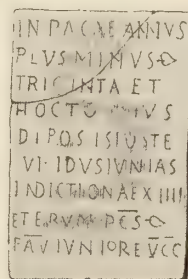 IN PACAE ANNVS
PLVS MINVS
TRICINTA ET
HOCTO
DIPOSISIVSTE
VI IDVS IVNHIAS
INDICTIONAEX IIII
ETERVM PC̅S
FAV IVNIORE VCC